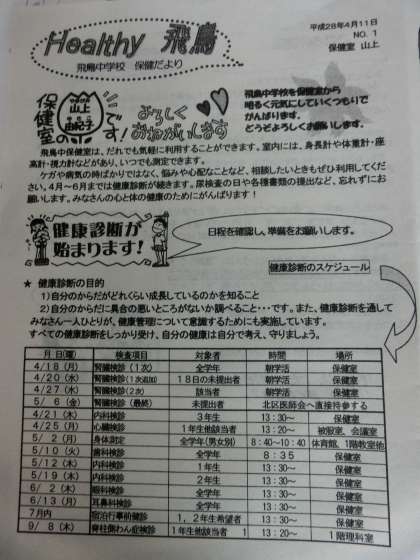 Healthy 飛鳥
飛鳥中学校 保健だより
平成28年4月11日
NO.1
保健室 山上
保健室の
山上
由紀子
です!
よろしく
おねがいします
飛鳥中学校を保健室から
明るく元気にしていくつもりで
がんばります。
どうぞよろしくお願いします。
飛鳥中保健室は、だれでも気軽に利用することができます。室内には、身長計や体重計・座
高計・視力計などがあり、いつでも測定できます。
ケガや病気の時ばかりではなく、悩みや心配なことなど、相談したいときもぜひ利用してくださ
い。4月~6月までは健康診断が続きます。尿検査の日や各種書類の提出など、忘れずにお
願いします。みなさんの心と体の健康のためにがんばります!
健康診断が
始まります!
日程を確認し、準備をお願いします。
健康診断のスケジュール
★ 健康診断の目的
1)自分のからだがどれくらい成長しているのかを知ること
2)自分のからだに異合の悪いところがないか調べること・・・です。また、健康診断を通して
みなさん一人ひとりが、健康管理について意識するためにも実施しています。
すべての健康診断をしっかり受け、自分の健康は自分で考え、守りましょう。
月 日(曜) 検査項目 対象者 時間 場所
4/18(月) 腎臓検診(1次) 全学年 朝学活 保健室
4/20(水) 腎臓検診(1次追加) 18日の未提出者 朝学活 保健室
4/27(水) 腎臓検診(2次) 該当者 朝学活 保健室
5/ 6(金) 腎臓検診(最終) 未提出者 北区医師会へ直接持参する
4/21(木) 内科検診 3年生 13:30~ 保健室
4/25(月) 心臓検診 1年生他該当者 13:20~ 被服室、会議室
5/ 2(月) 身体測定 全学年(男女別) 8:40~10:40 体育館、1階教室他
5/10(火) 歯科検診 全学年 8:35 保健室
5/12(木) 内科検診 1年生 13:30~ 保健室
5/19(木) 内科検診 2年生 13:30~ 保健室
6/ 2(木) 眼科検診 全学年 13:30~ 保健室
6/13(月) 耳鼻科検診 全学年 13:30~ 保健室
7月内 宿泊行事前健診 1,2年生希望者 13:30~ 保健室
9/ 8(木) 脊柱側わん症検診 1年生他該当者 13:20~ 1階理科室